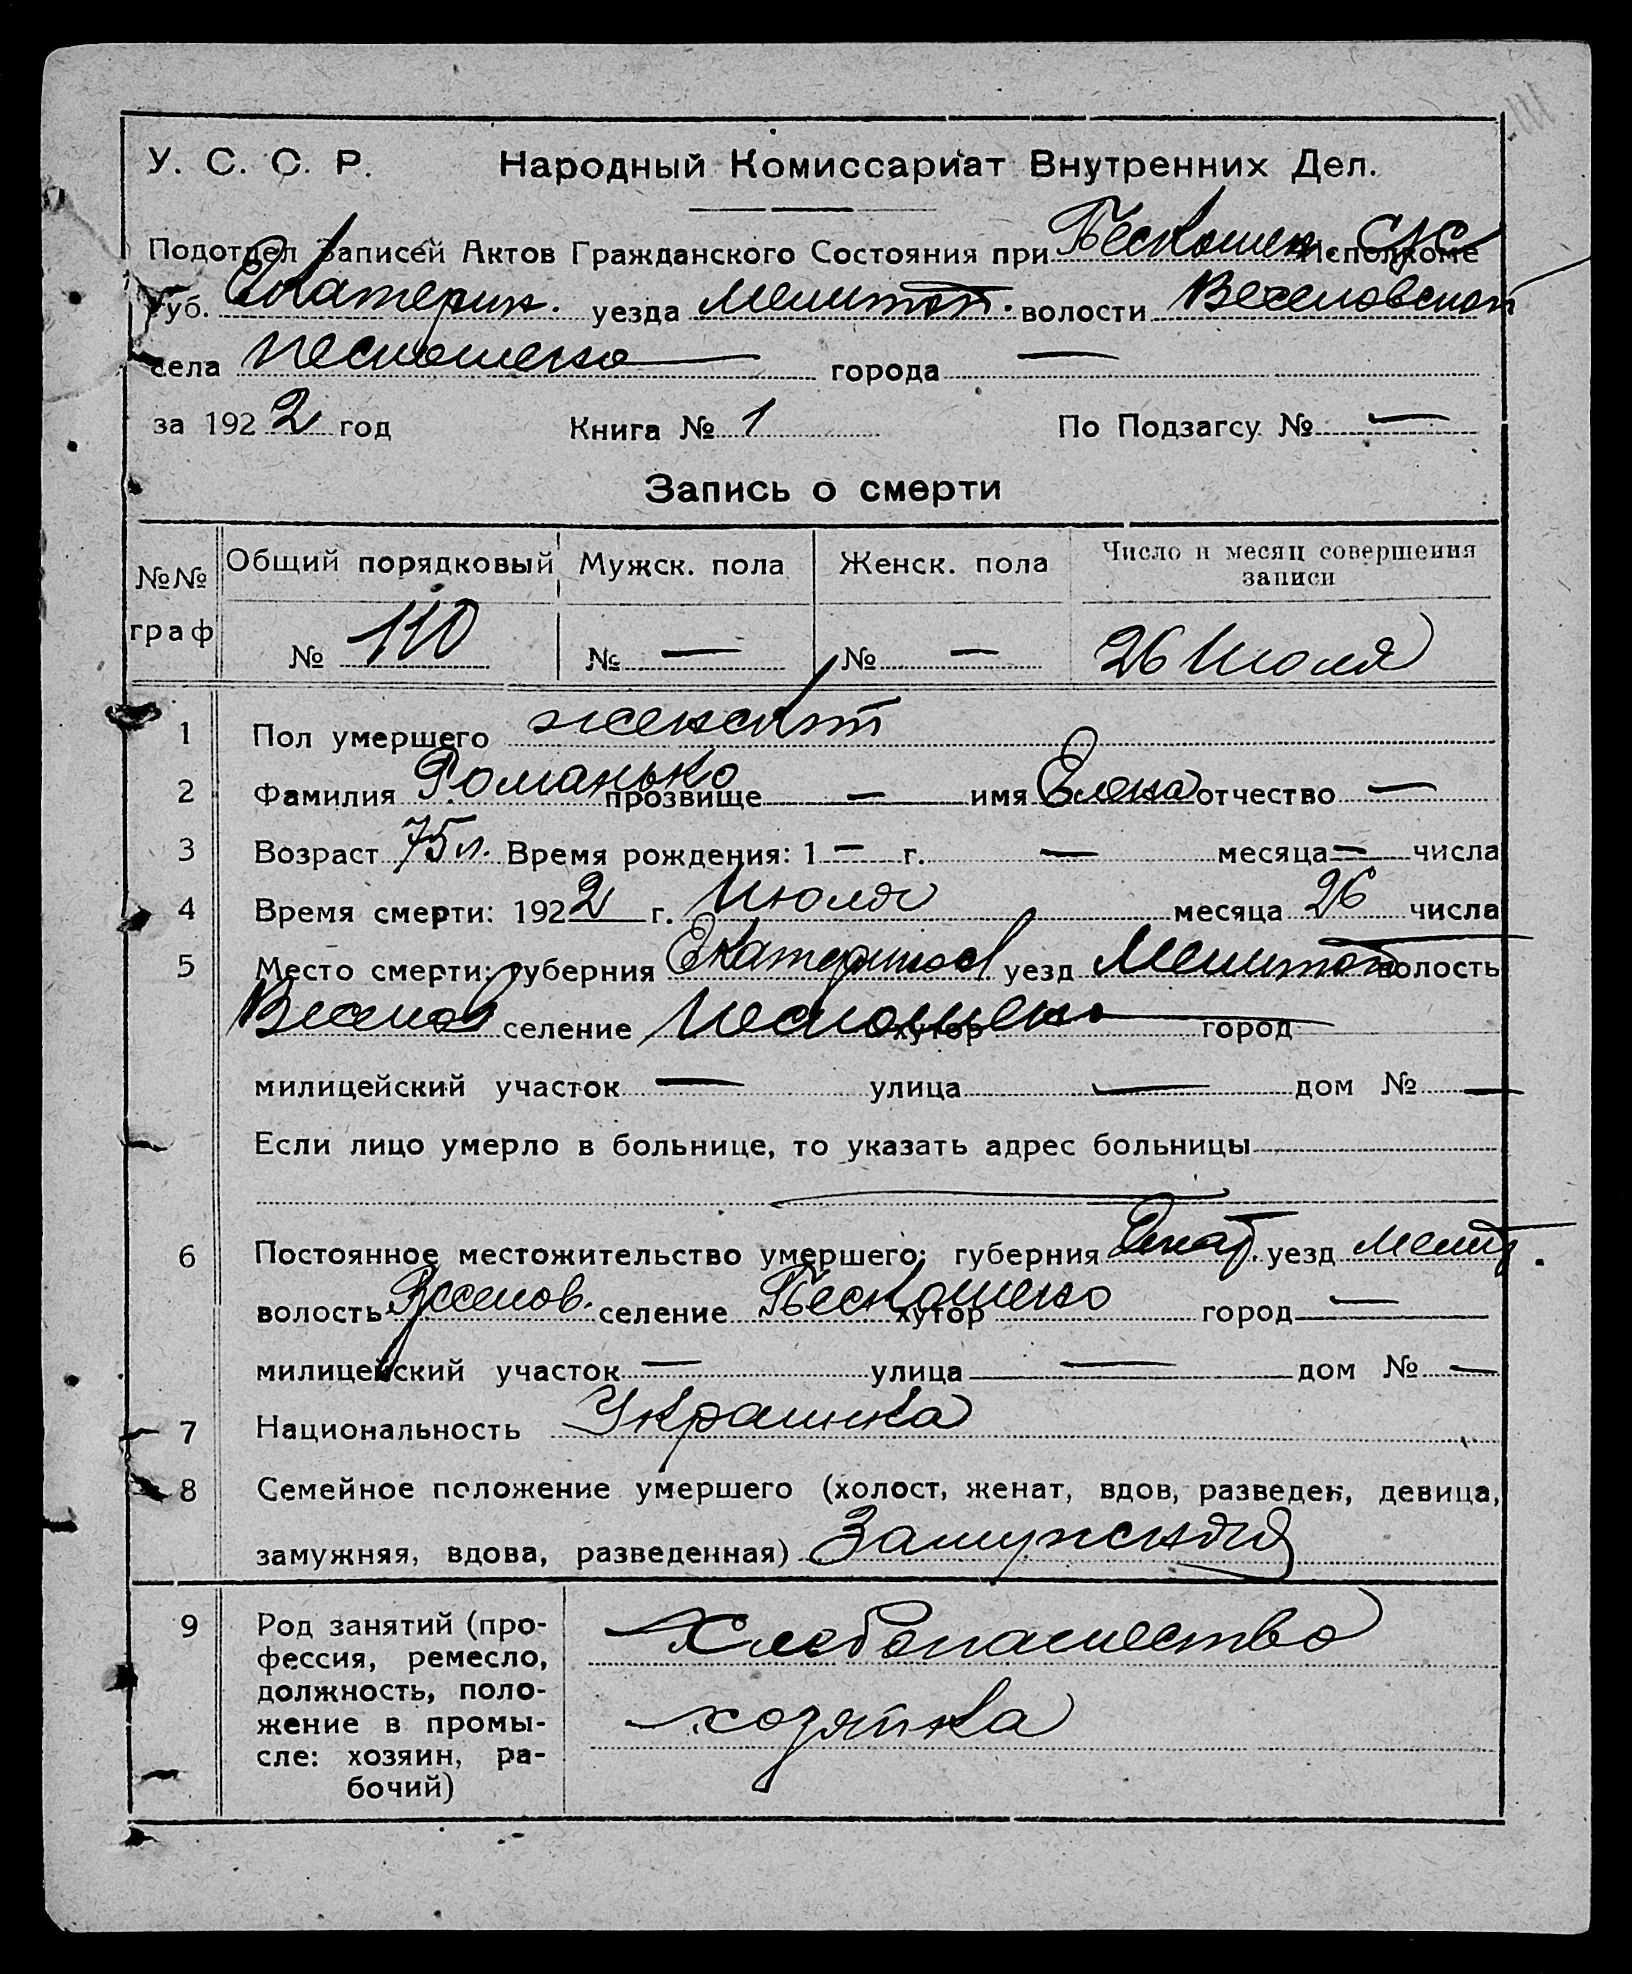 У. С. С. Р. Народный Комиссариат Внутренних Дел.
Подотдел Записей Актов Гражданского Состояния при ПесКошен. С/С Исполкоме
Губ. Екатерин. уезда Мелитоп. волости Веселовской
села Пескошено города —
за 1922 год Книга № 1 По Подзагсу № —
Запись о смерти
№№ граф Общий порядковый Мужск. пола Женск. пола Число и месяц совершения записи
№ 110 № — № — 26 Июля
1 Пол умершего женский
2 Фамилия Романько прозвище — имя Елена отчество —
3 Возраст 75 л. Время рождения: 1 — г. — месяца — числа
4 Время смерти: 1922 г. Июля месяца 26 числа
5 Место смерти: губерния Екатеринос уезд Мелитоп волость
Веселов селение Пескошено хутор город
милицейский участок — улица — дом № —
Если лицо умерло в больнице, то указать адрес больницы
—
6 Постоянное местожительство умершего: губерния Екат. уезд Мелит.
волость Веселов. селение ПесКошено хутор город —
милицейский участок — улица — дом № —
7 Национальность Украинка
8 Семейное положение умершего (холост, женат, вдов, разведен, девица,
замужняя, вдова, разведенная) Замужняя
9 Род занятий (про-
фессия, ремесло,
должность, поло-
жение в промы-
сле: хозяин, ра-
бочий)
Хлебопашество
хозяйка